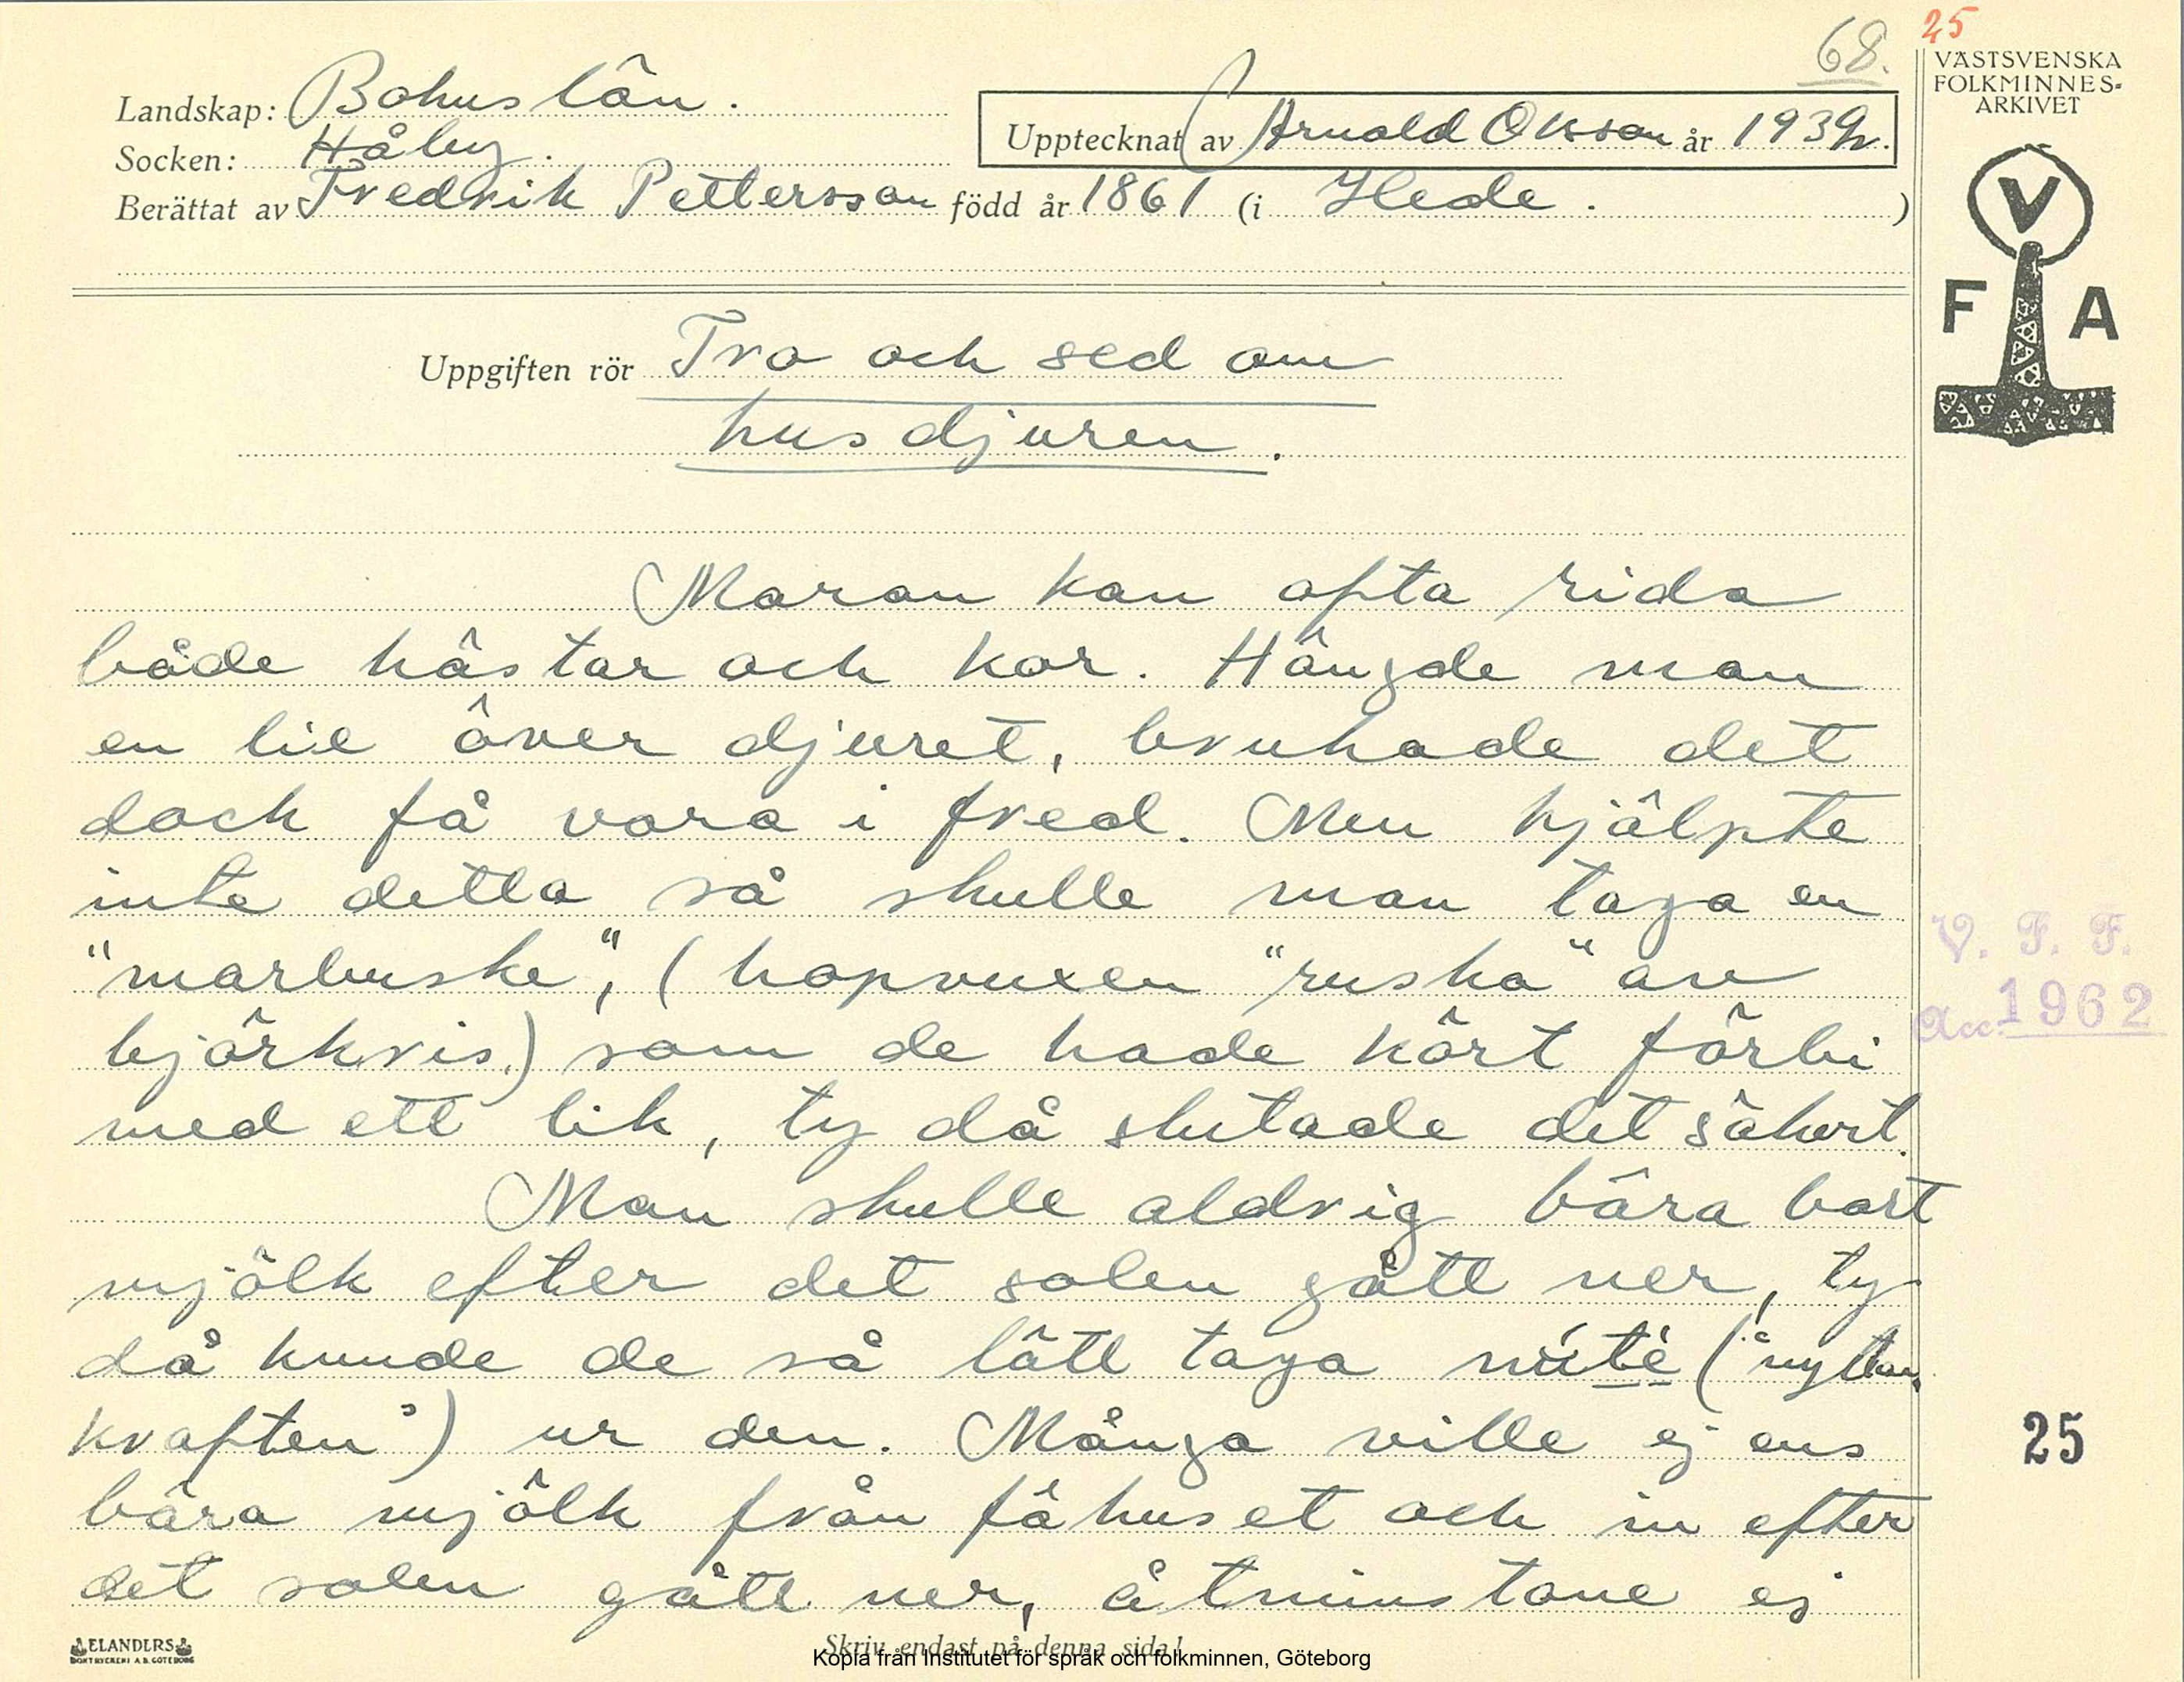 68. 25
VÄSTSVENSKA
FOLKMINNES-
ARKIVET
Landskap: Bohuslän.
Upptecknat av Arnold Olsson år 1932
Socken: Håby.
Berättat av Fredrik Pettersson född år 1861 (i Hede. )
V
F A
Uppgiften rör Tro och sed om
husdjuren.
Maran kan ofta rida
både hästar och kor. Hängde man
en lie över djuret, brukade det
dock få vara i fred. Men hjälpte
inte detta så skulle man taga en
"marbuske", (hopvuxen "ruska" av
björkris.) som de hade kört förbi
med ett lik, ty då slutade det säkert.
V. F. F.
Acc. 1962
Man skulle aldrig bära bort
mjölk efter det solen gått ner, ty
då kunde de så lätt taga (nyttan,
kraften) ur den. Många ville ej ens
25
bära mjölk från fähuset och in efter
det solen gått ner, åtminstone ej
ELANDERS
BOKTRYCKERI A.B. GÖTEBORG
Skriv endast på denna sida!
Kopia från Institutet för språk och folkminnen, Göteborg